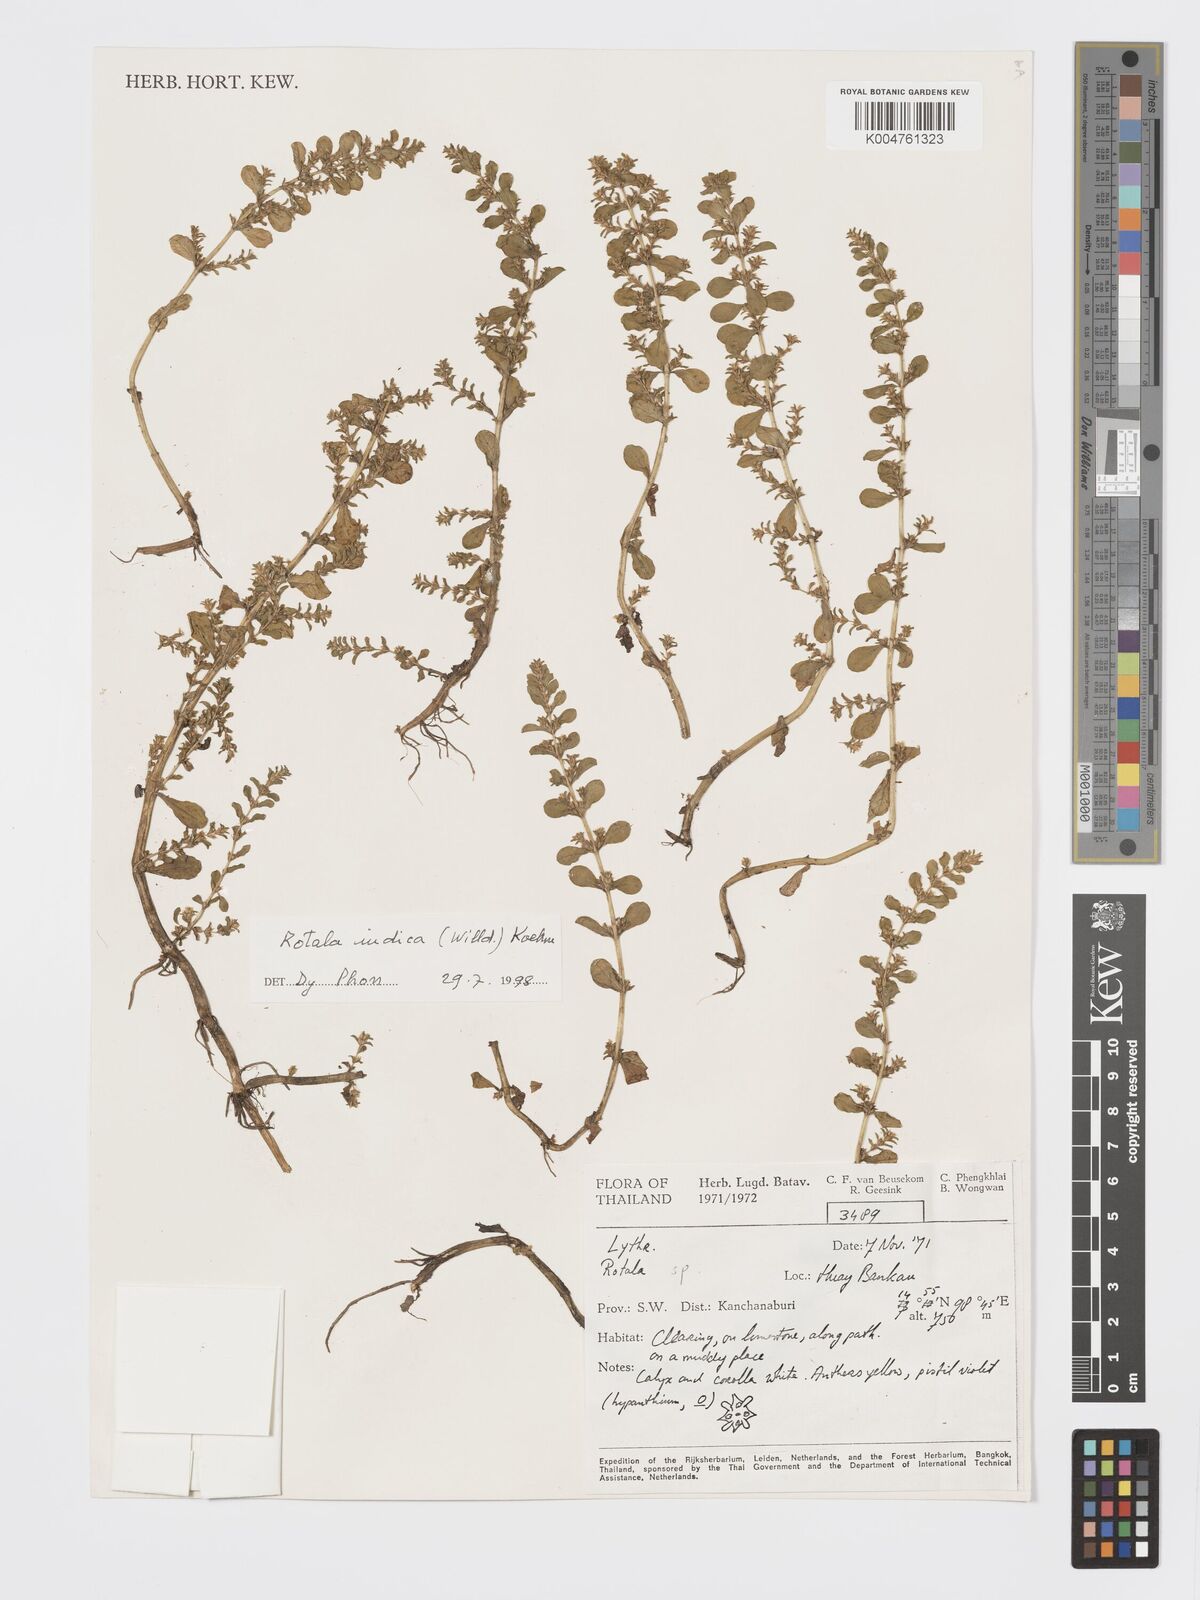 HERB. HORT. KEW.
ROYAL BOTANIC GARDENS KEW
K004761323
Rotala indica (Willd.) Koehne
DET. Dy Phon 29.7. 1998
FLORA OF THAILAND
Herb. Lugd. Batav.
1971/1972
C. F. van Beusekom
R. Geesink
C. Phengkhlai
B. Wongwan
3489
Lythr.
Date: 7 Nov. '71
Rotala sp.
Loc.: Huay Bankau
Prov.: S.W. Dist.: Kanchanaburi
14 ° 55 'N 98 ° 45 'E
alt. 750 m
Habitat: Clearing, on limestone, along path.
on a muddy place
Notes: Calyx and corolla white. Anthers yellow, pistil violet
(hypanthium, o)
Expedition of the Rijksherbarium, Leiden, Netherlands, and the Forest Herbarium, Bangkok,
Thailand, sponsored by the Thai Government and the Department of International Technical
Assistance, Netherlands.
inches
centimeters
Density
Don Williams
M001000
Royal Botanic Gardens
Kew
0 1 2 3 4 5 6 7 8 9 10
cm
copyright reserved